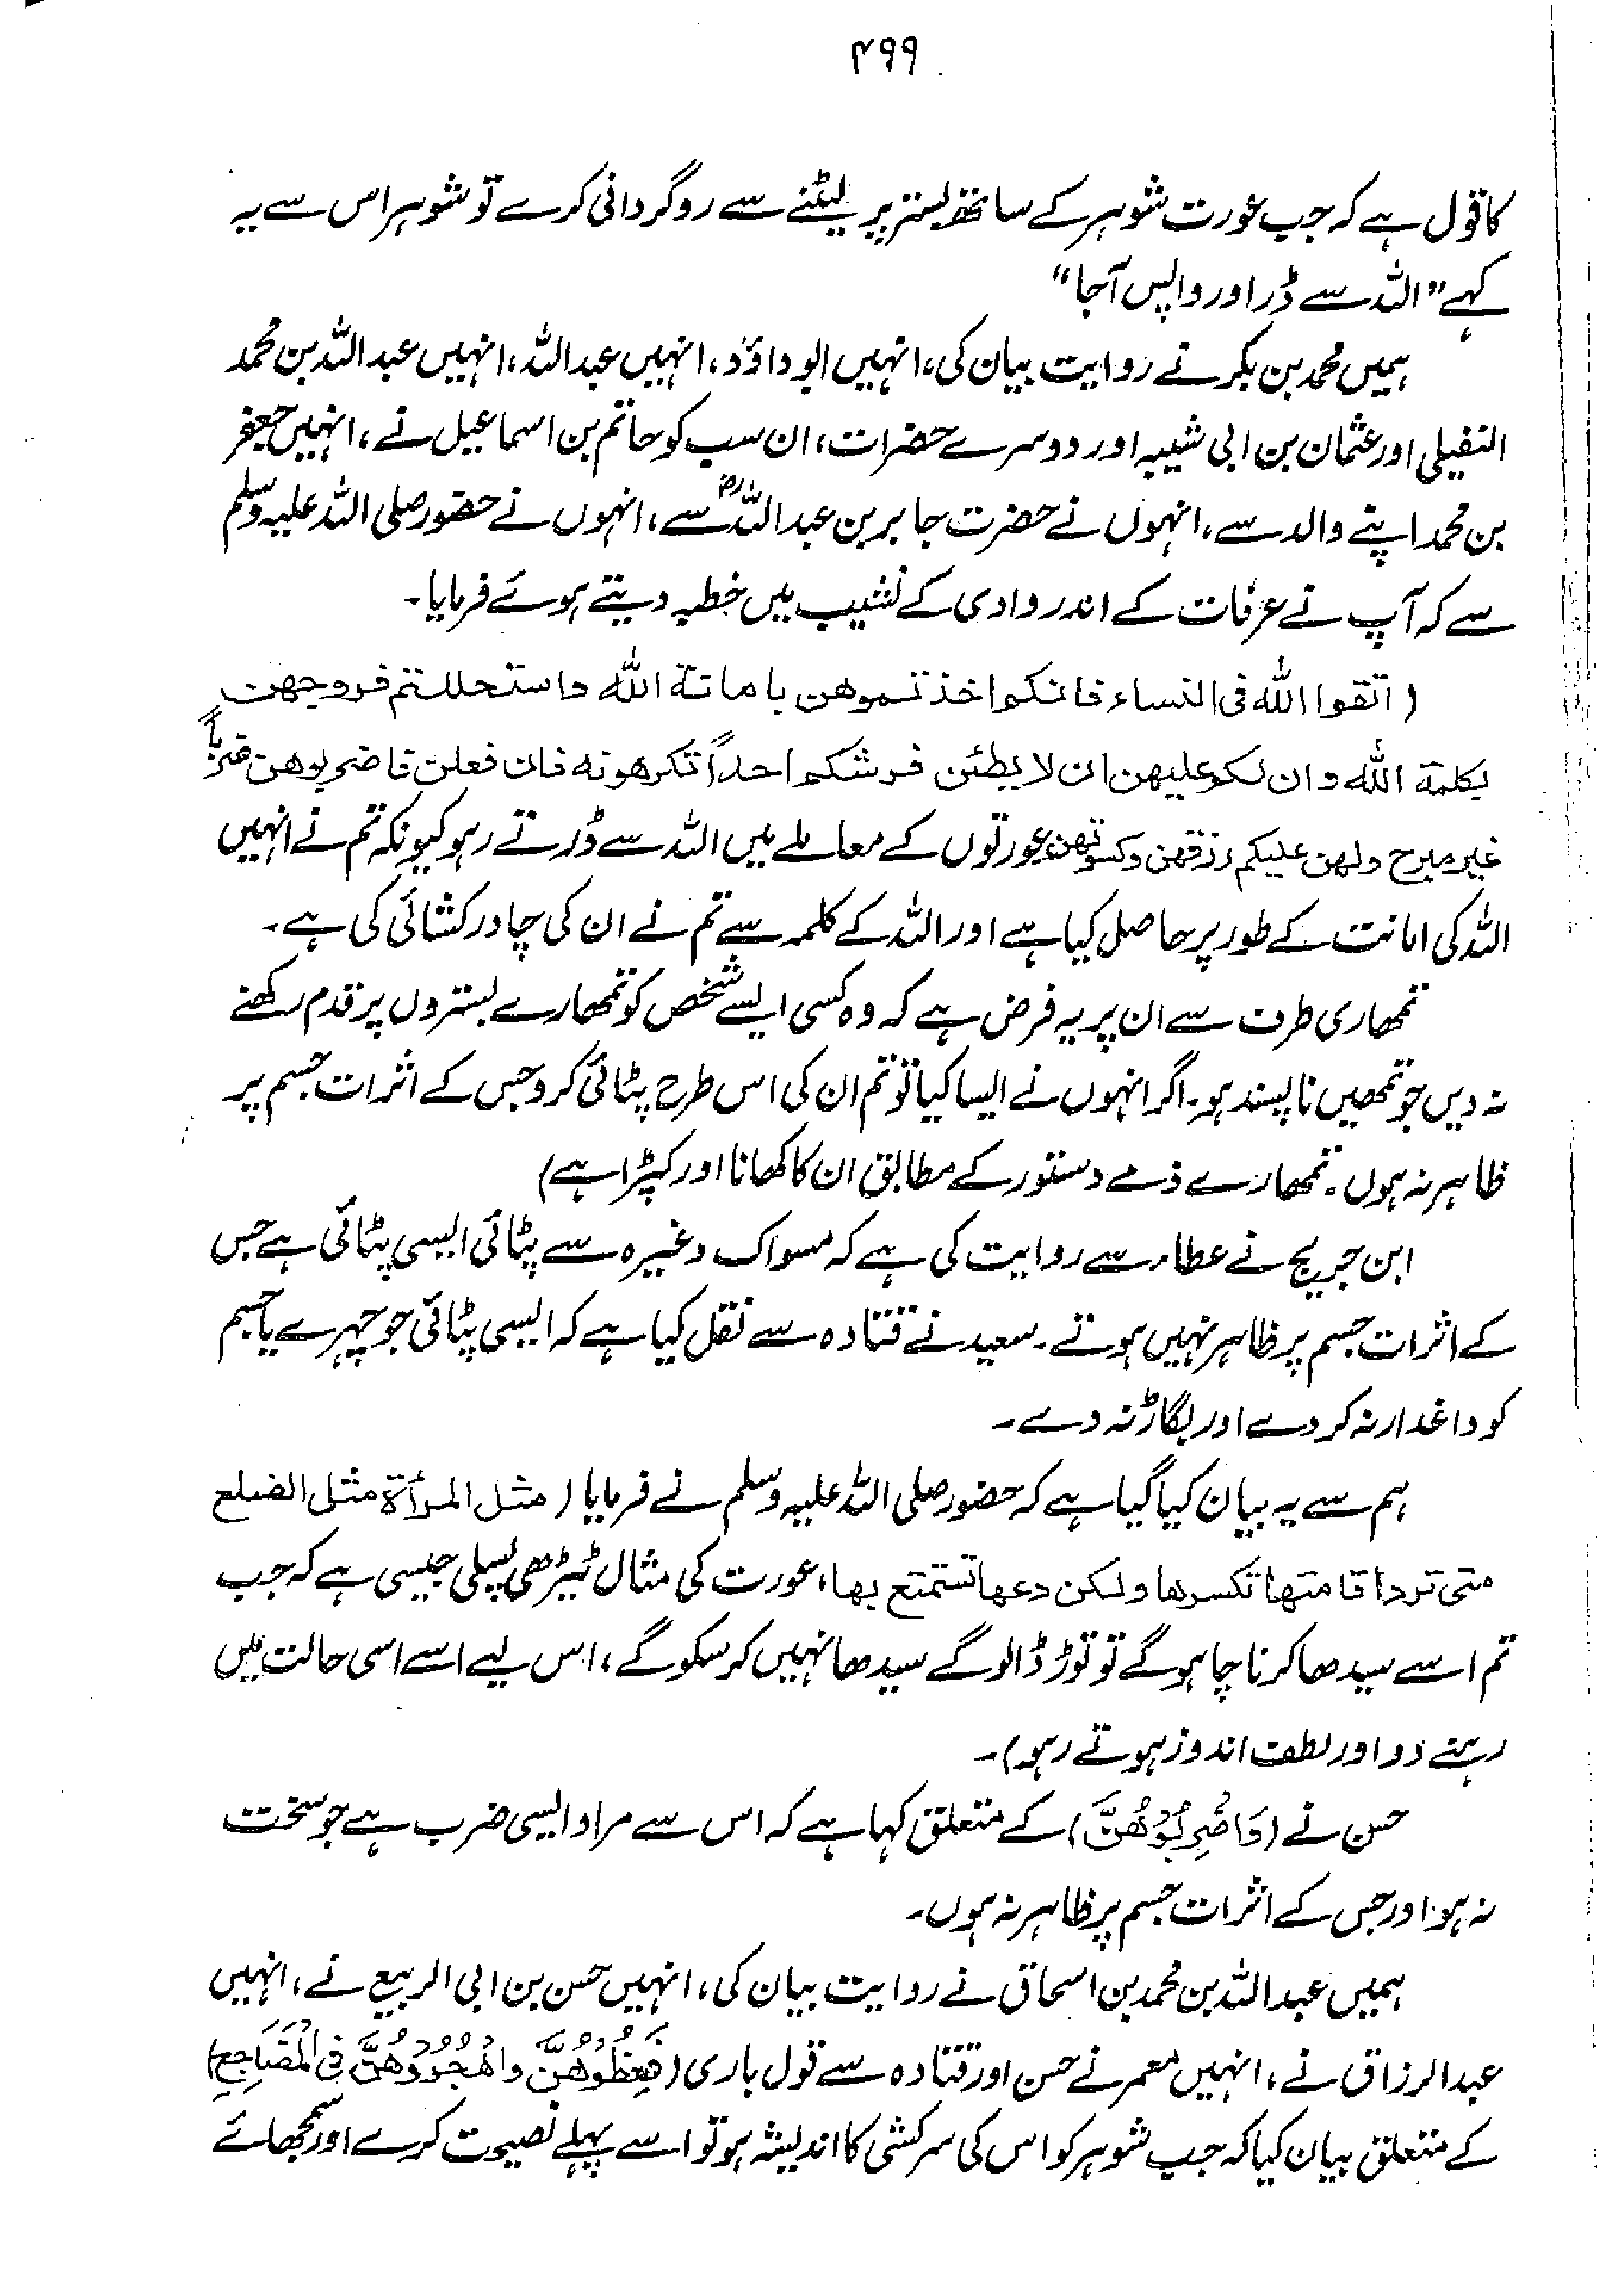 ۴۹۹
کا قول ہے کہ جب عورت شوہر کے ساتھ بستر پر لیٹنے سے روگردانی کرے تو شوہر اس سے یہ
کہے "اللہ سے ڈر اور واپس آجا"
ہمیں محمد بن بکر نے روایت بیان کی، انہیں ابو داؤد، انہیں عبداللہ، انہیں عبداللہ بن محمد
النفیلی اور عثمان بن ابی شیبہ اور دوسرے حضرات، ان سب کو حاتم بن اسماعیل نے، انہیں جعفر
بن محمد اپنے والد سے، انہوں نے حضرت جابر بن عبداللہؓ سے، انہوں نے حضور صلی اللہ علیہ وسلم
سے کہ آپ نے عرفات کے اندر وادی کے نشیب میں خطبہ دیتے ہوئے فرمایا۔
(اتقوا اللہ فی النساء فانکم اخذتموھن بامانۃ اللہ واستحللتم فروجھن
بکلمۃ اللہ وان لکم علیھن ان لا یطئن فرشکم احداً تکرھونہ فان فعلن فاضربوھن ضرباً
غیر مبرح ولھن علیکم رزقھن وکسوتھن، عورتوں کے معاملے میں اللہ سے ڈرتے رہو کیونکہ تم نے انہیں
اللہ کی امانت کے طور پر حاصل کیا ہے اور اللہ کے کلمہ سے تم نے ان کی چادر کشائی کی ہے۔
تمھاری طرف سے ان پر یہ فرض ہے کہ وہ کسی ایسے شخص کو تمھارے بستروں پر قدم رکھنے
نہ دیں جو تمھیں ناپسند ہو۔ اگر انہوں نے ایسا کیا تو تم ان کی اس طرح پٹائی کرو جس کے اثرات جسم پر
ظاہر نہ ہوں۔ تمھارے ذمے دستور کے مطابق ان کا کھانا اور کپڑا ہے)
ابن جریج نے عطاء سے روایت کی ہے کہ مسواک وغیرہ سے پٹائی ایسی پٹائی ہے جس
کے اثرات جسم پر ظاہر نہیں ہوتے۔ سعید نے قتادہ سے نقل کیا ہے کہ ایسی پٹائی جو چہرے یا جسم
کو داغدار نہ کر دے اور بگاڑ نہ دے۔
ہم سے یہ بیان کیا گیا ہے کہ حضور صلی اللہ علیہ وسلم نے فرمایا (مثل المرأۃ مثل الضلع
متی ترد اقامتھا تکسرھا ولکن دعھا تستمتع بھا، عورت کی مثال ٹیڑھی پسلی جیسی ہے کہ جب
تم اسے سیدھا کرنا چاہو گے تو توڑ ڈالو گے سیدھا نہیں کر سکو گے، اس لیے اسے اسی حالت میں
رہنے دو اور لطف اندوز ہوتے رہو)۔
حسن نے (وَاضْرِبُوْھُنَّ) کے متعلق کہا ہے کہ اس سے مراد ایسی ضرب ہے جو سخت
نہ ہو اور جس کے اثرات جسم پر ظاہر نہ ہوں۔
ہمیں عبداللہ بن محمد بن اسحاق نے روایت بیان کی، انہیں حسن بن ابی الربیع نے، انہیں
عبدالرزاق نے، انہیں معمر نے حسن اور قتادہ سے قول باری (فَعِظُوْھُنَّ وَاھْجُرُوْھُنَّ فِی الْمَضَاجِعِ)
کے متعلق بیان کیا کہ جب شوہر کو اس کی سرکشی کا اندیشہ ہو تو اسے پہلے نصیحت کرے اور سمجھائے